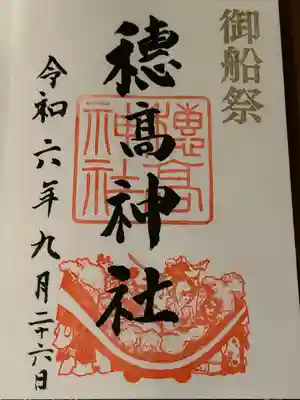 御船祭
穂髙神社
穂髙神社
令和六年九月二十六日